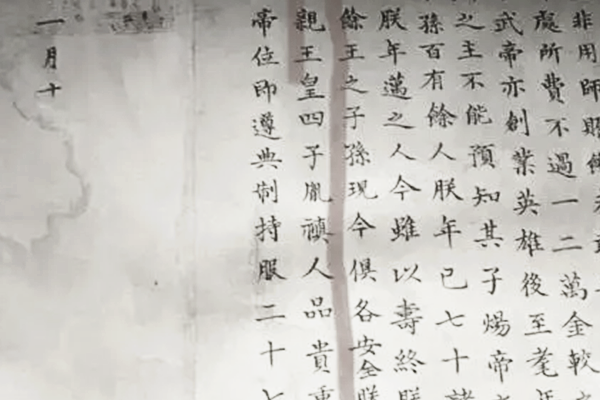 非用師賑
處所費不過一二萬金較
武帝亦創業英雄後至耄年
之主不能預知其子煬帝
孫百有餘人朕年已七十諸
朕年邁之人今雖以壽終朕
餘王之子孫現今俱各安全朕
親王皇四子胤禛人品貴重
帝位即遵典制持服二十七
一月十